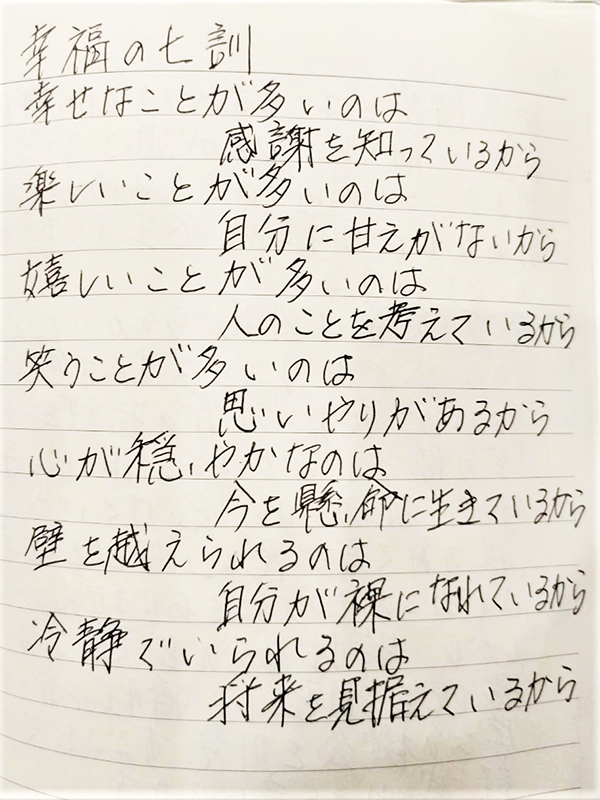 幸福の七訓
幸せなことが多いのは
感謝を知っているから
楽しいことが多いのは
自分に甘えがないから
嬉しいことが多いのは
人のことを考えているから
笑うことが多いのは
思いやりがあるから
心が穏やかなのは
今を懸命に生きているから
壁を越えられるのは
自分が裸になれているから
冷静でいられるのは
将来を見据えているから